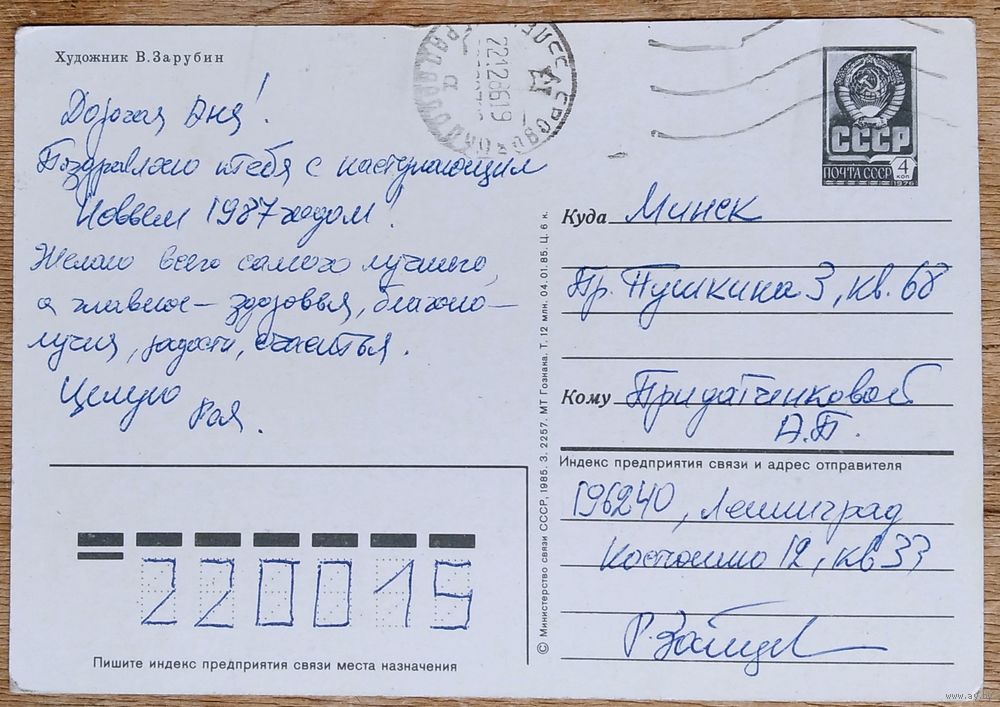 Художник В.Зарубин
Дорогая Аня!
Поздравляю тебя с наступающим
Новым 1987 годом!
Желаю всего самого лучшего,
а главное — здоровья, благопо-
лучия, радости, счастья.
Целую
Рая.
22.12.86 19
СССР
ПОЧТА СССР
4 коп
1976
Куда Минск
Пр. Пушкина 3, кв. 68
Кому Придатченковой
А.П.
Индекс предприятия связи и адрес отправителя
196240, Ленинград
Костюшко 12, кв 33
Р. Зайцев
220015
Пишите индекс предприятия связи места назначения
© Министерство связи СССР, 1985. З. 2257. МТ Гознака. Т. 12 млн. 04.01.85. Ц. 6 к.
www.ay.by